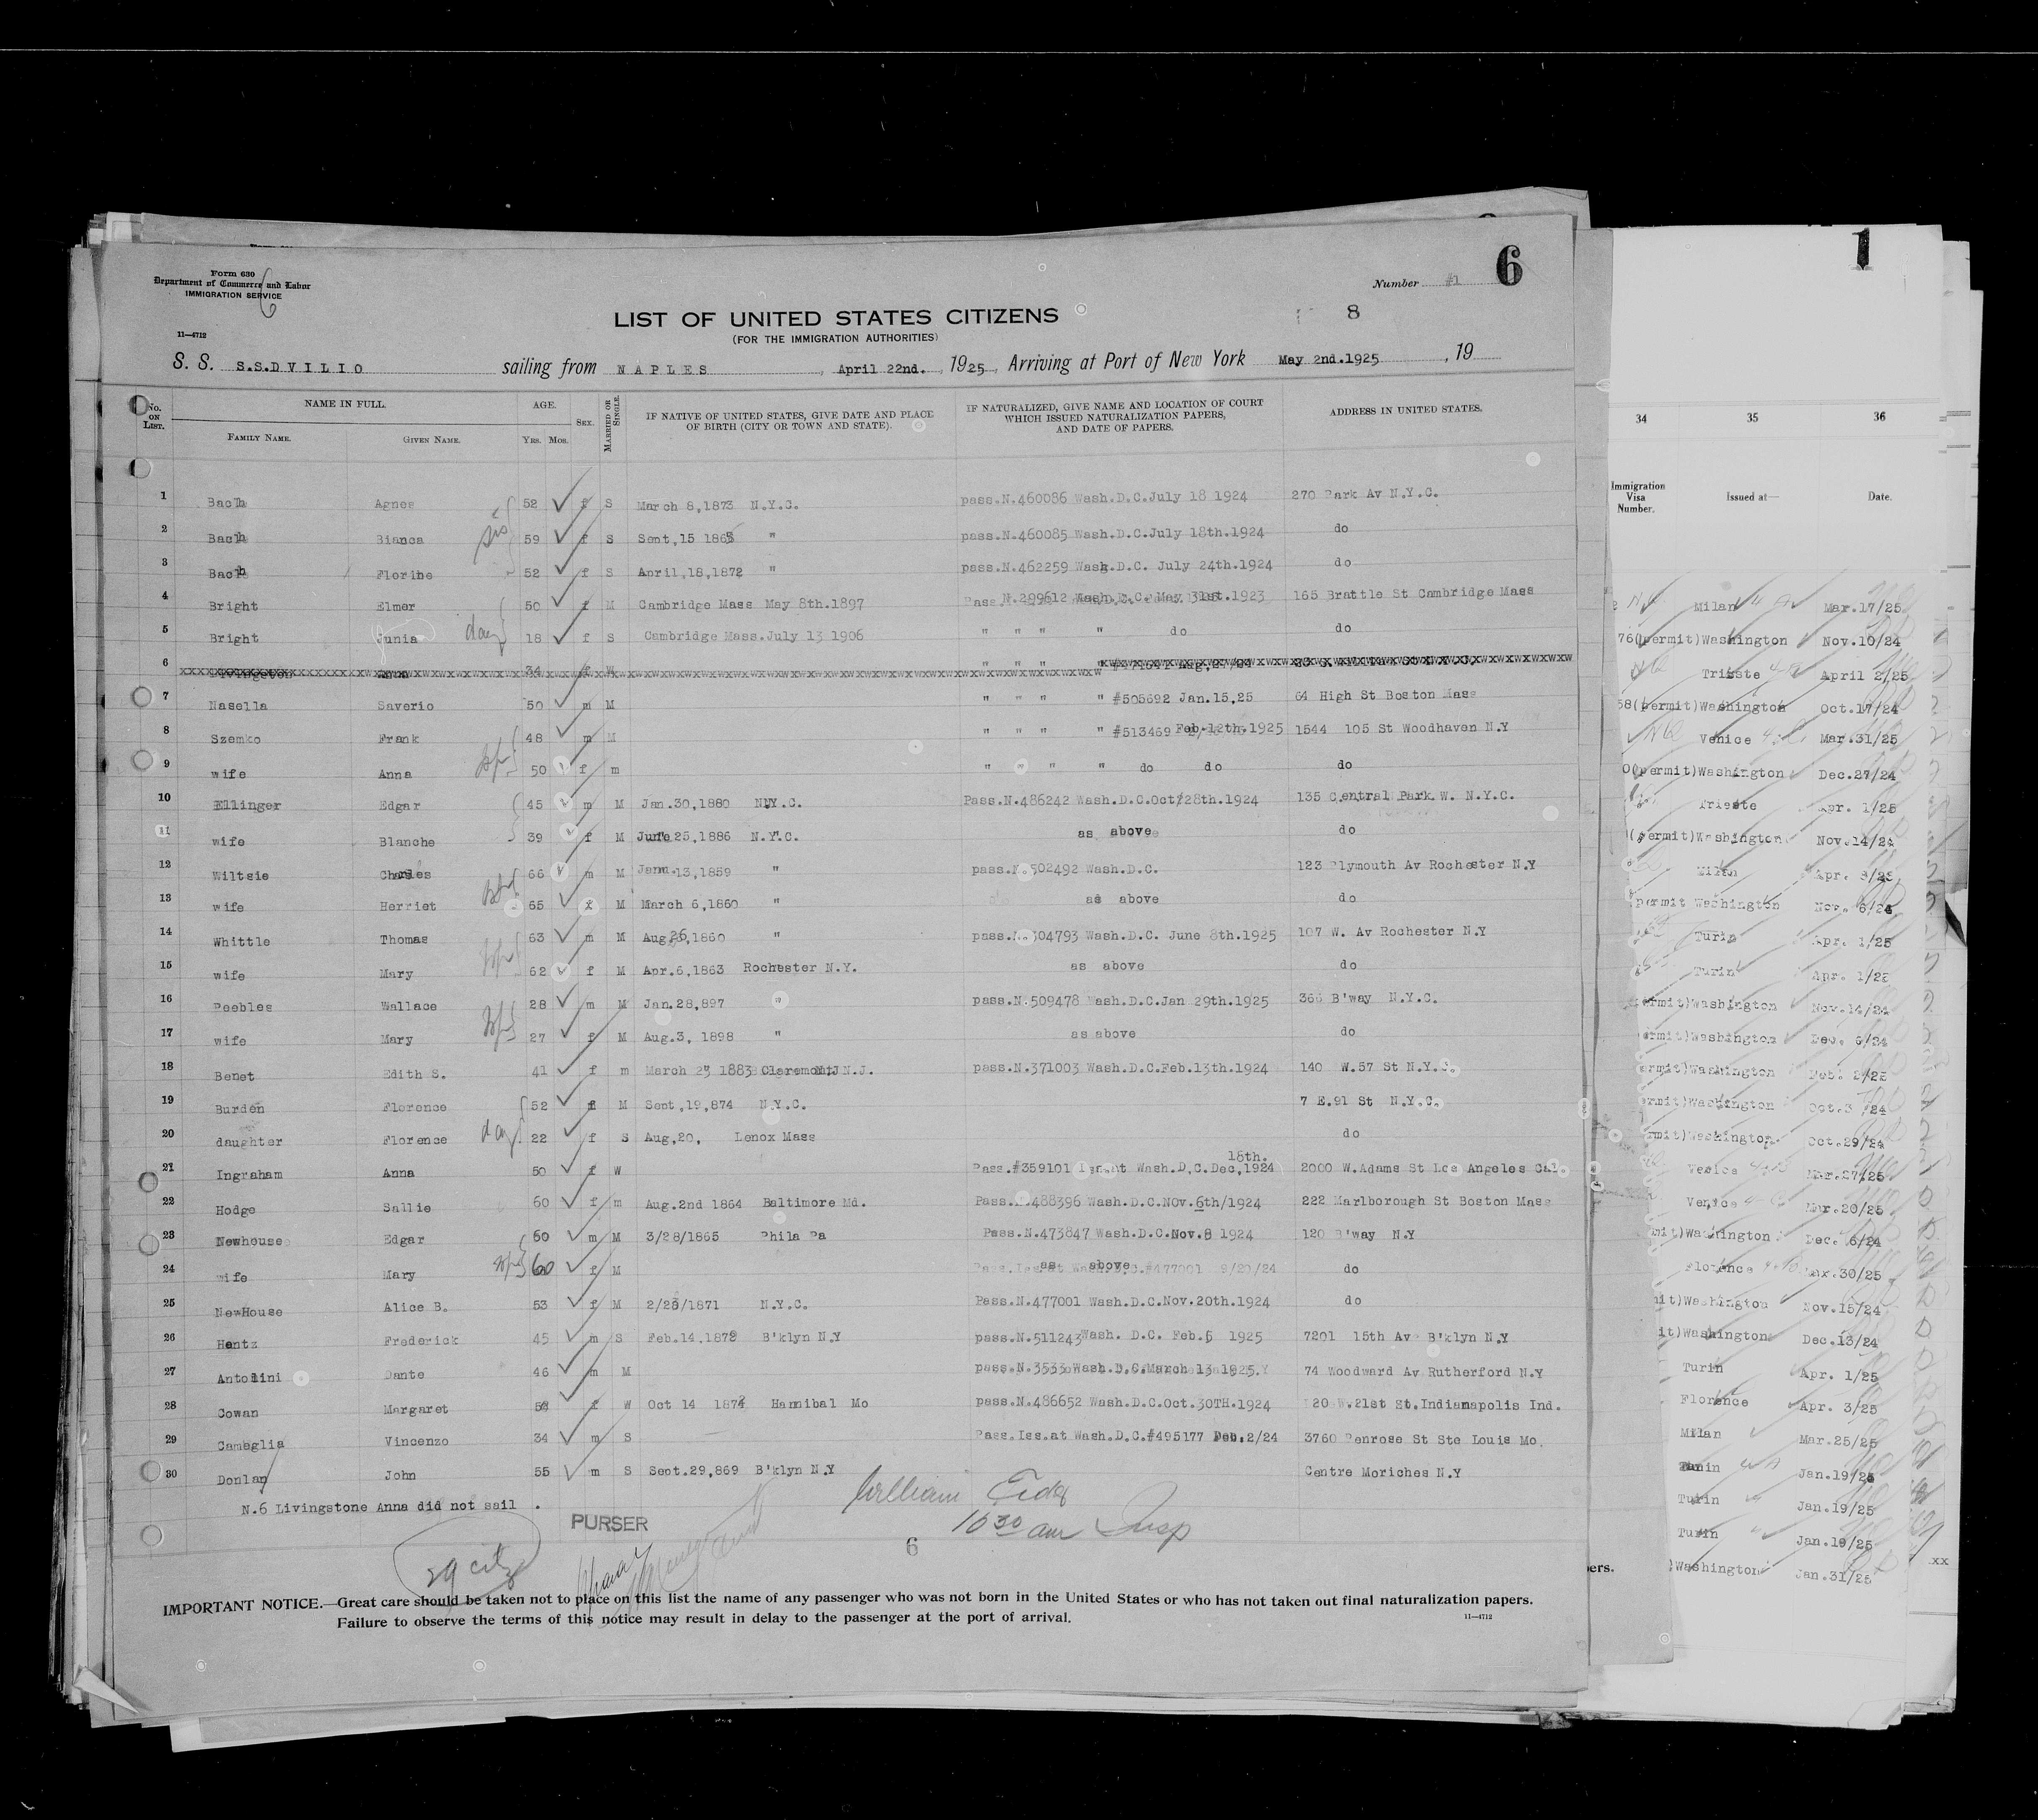 1
6
Form 630
Department of Commerce and Labor
IMMIGRATION SERVICE
6
Number #1
8
LIST OF UNITED STATES CITIZENS
(FOR THE IMMIGRATION AUTHORITIES)
11—4712
S. S. S.S.DVILIO sailing from NAPLES, April 22nd., 1925, Arriving at Port of New York May 2nd.1925, 19
No. ON LIST. NAME IN FULL. FAMILY NAME. GIVEN NAME. AGE. YRS. MOS. SEX. MARRIED OR SINGLE. IF NATIVE OF UNITED STATES, GIVE DATE AND PLACE OF BIRTH (CITY OR TOWN AND STATE). IF NATURALIZED, GIVE NAME AND LOCATION OF COURT WHICH ISSUED NATURALIZATION PAPERS, AND DATE OF PAPERS. ADDRESS IN UNITED STATES.
1 Bach Agnes 52 f S March 8,1873 N.Y.C. pass.N.460086 Wash.D.C.July 18 1924 270 Park Av N.Y.C.
2 Bach Bianca sis 59 f S Sept,15 1865 " pass.N.460085 Wash.D.C.July 18th.1924 do
3 Bach Florine 52 f S April,18,1872 " pass.N.462259 Wash.D.C. July 24th.1924 do
4 Bright Elmer 50 f M Cambridge Mass May 8th.1897 Pass.N.299612 Wash.D.C.May 31st.1923 165 Brattle St Cambridge Mass
5 Bright Junia dau 18 f S Cambridge Mass.July 13 1906 " " " " do do
6 Livingston Anna 34 f W " " "
7 Nasella Saverio 50 m M " " " " #505692 Jan.15,25 64 High St Boston Mass
8 Szemko Frank 48 m M " " " " #513469 Feb.12th.1925 1544 105 St Woodhaven N.Y
9 wife Anna wf 50 f m " " " " do do do
10 Ellinger Edgar 45 m M Jan.30,1880 N.Y.C. Pass.N.486242 Wash.D.C.Oct/28th.1924 135 Central Park W. N.Y.C.
11 wife Blanche 39 f M June 25,1886 N.Y.C. as above do
12 Wiltsie Charles 66 m M Jan.13,1859 " pass.N.502492 Wash.D.C. 123 Plymouth Av Rochester N.Y
13 wife Herriet wf 65 f M March 6,1860 " as above do
14 Whittle Thomas 63 m M Aug.26,1860 " pass.N.504793 Wash.D.C. June 8th.1925 107 W. Av Rochester N.Y
15 wife Mary wf 62 f M Apr.6,1863 Rochester N.Y. as above do
16 Peebles Wallace 28 m M Jan.28,897 " pass.N.509478 Wash.D.C.Jan 29th.1925 366 B'way N.Y.C.
17 wife Mary wf 27 f M Aug.3, 1898 " as above do
18 Benet Edith S. 41 f m March 23 1883 Claremont N.J. pass.N.371003 Wash.D.C.Feb.13th.1924 140 W.57 St N.Y.C.
19 Burden Florence 52 f M Sept,19,874 N.Y.C. 7 E.91 St N.Y.C.
20 daughter Florence dau 22 f S Aug,20, Lenox Mass do
21 Ingraham Anna 50 f W Pass.#359101 Iss.at Wash.D.C.Dec,15th.1924 2000 W.Adams St Los Angeles Cal.
22 Hodge Sallie 60 f m Aug.2nd 1864 Baltimore Md. Pass.N.488396 Wash.D.C.Nov.6th/1924 222 Marlborough St Boston Mass
23 Newhouse Edgar 60 m M 3/28/1865 Phila Pa Pass.N.473847 Wash.D.C.Nov.8 1924 120 B'way N.Y
24 wife Mary wf 60 f M as above do
25 NewHouse Alice B. 53 f M 2/28/1871 N.Y.C. Pass.N.477001 Wash.D.C.Nov.20th.1924 do
26 Hentz Frederick 45 m S Feb.14,1879 B'klyn N.Y pass.N.511243 Wash. D.C. Feb.5 1925 7201 15th Av B'klyn N.Y
27 Antolini Dante 46 m M pass.N.3533 Wash.D.C.March 13 1925. 74 Woodward Av Rutherford N.Y
28 Cowan Margaret f W Oct 14 1872 Hannibal Mo pass.N.486652 Wash.D.C.Oct.30TH.1924 120 W.21st St.Indianapolis Ind.
29 Camaglia Vincenzo 34 m S Pass.Iss.at Wash.D.C.#495177 Deb.2/24 3760 Penrose St Ste Louis Mo.
30 Donlan John 55 m S Sept.29,869 B'klyn N.Y Centre Moriches N.Y
N.6 Livingstone Anna did not sail .
William
10 30 am Insp
PURSER
6
29 citz
IMPORTANT NOTICE.—Great care should be taken not to place on this list the name of any passenger who was not born in the United States or who has not taken out final naturalization papers.
Failure to observe the terms of this notice may result in delay to the passenger at the port of arrival.
11—4712
34 35 36
Immigration Visa Number. Issued at— Date.
Milan Mar.17/25
76(permit)Washington Nov.10/24
Trieste April 2/25
58(permit)Washington Oct.17/24
Venice Mar.31/25
0(permit)Washington Dec.27/24
Trieste Apr. 1/25
(permit)Washington Nov.14/24
Milan Apr. 8/25
permit Washington Nov. 6/24
Turin Apr. 1/25
Turin Apr. 1/25
ermit)Washington Nov.14/24
ermit)Washington Dec. 6/24
ermit)Washington Feb. 2/25
ermit)Washington Oct.3 /24
rmit)Washington Oct.29/24
Venice Mar.27/25
Venice Mar.20/25
mit)Washington Dec. 6/24
Florence Mar.30/25
mit)Washington Nov.15/24
it)Washington Dec.13/24
Turin Apr. 1/25
Florence Apr. 3/25
Milan Mar.25/25
Turin Jan.19/25
Turin Jan.19/25
Turin Jan.19/25
)Washington Jan.31/25
xx
pers.